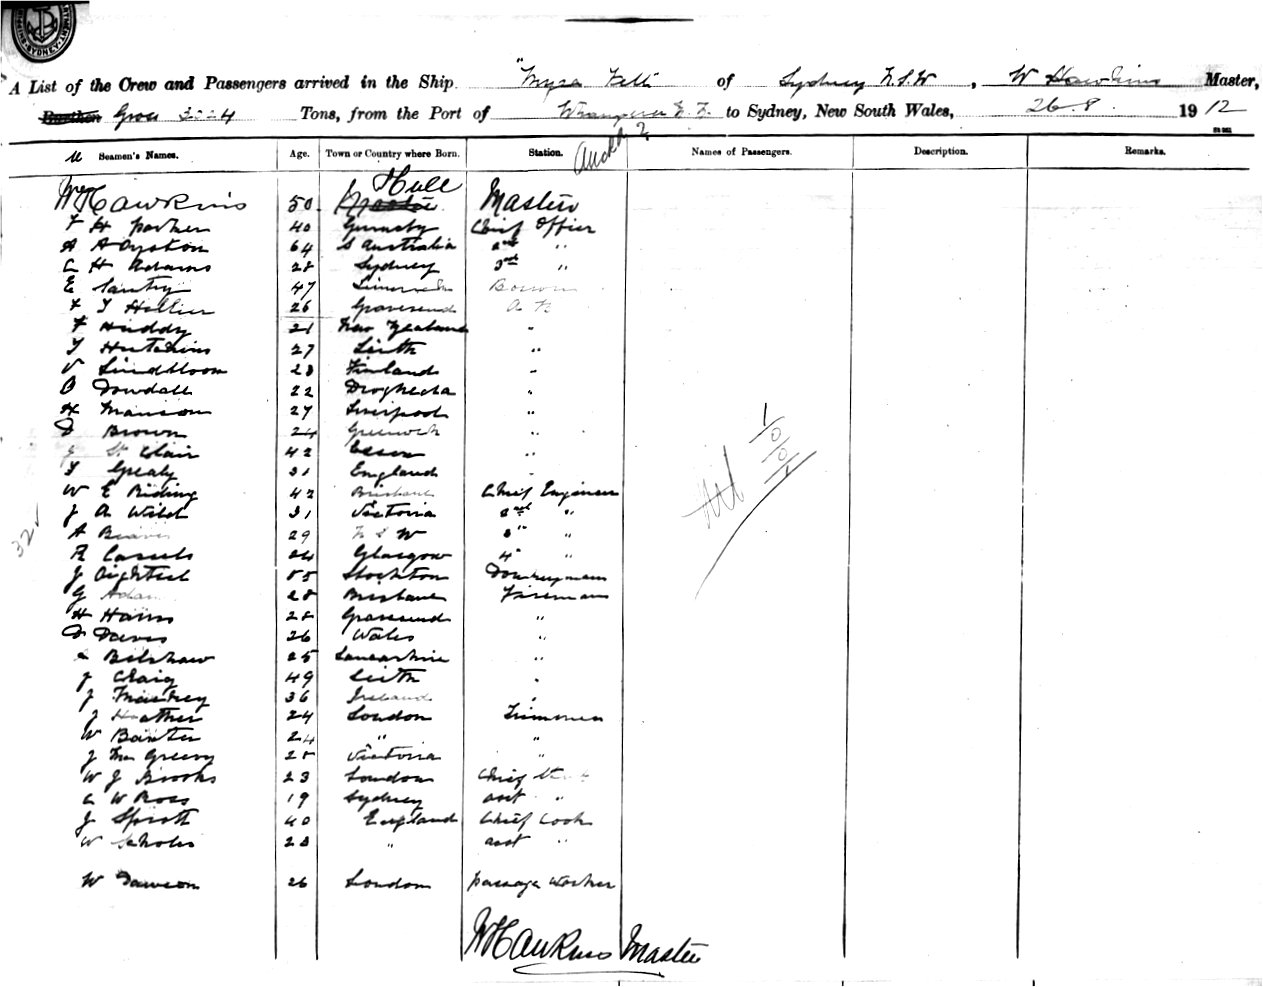 A List of the Crew and Passengers arrived in the Ship "Myra Fell of Sydney N.S.W , W Hawkins Master,
Burthen Gross 3024 Tons, from the Port of to Sydney, New South Wales, 26.8. 1912
Seamen's Names. Age. Town or Country where Born. Station. Names of Passengers. Description. Remarks.
Hull
W Hawkins 50 Master
F H Parker 40 Grimsby Chief Officer
A A Oyston 64 S Australia 2nd "
C H Adams 28 Sydney 3rd "
E 47
F J Hellier 26 Gravesend A B
F Huddy 21 New Zealand "
J Hutchins 27 Leith "
V Lindbloom 28 Finland "
O Dowdall 22 Drogheda "
H Manson 27 Liverpool "
D Brown 24 Greenock "
J St Clair 42 Essex "
J Grealy 31 England "
W E Riding 42 Brisbane Chief Engineer
J A Wild 31 Victoria 2nd "
A 29 N S W 3rd "
R Cassels 24 Glasgow 4th "
J 55 Stockton Donkeyman
G Adam 28 Brisbane Fireman
H Hains 28 Gravesend "
D Davis 26 Wales "
Belshaw 25 Lancashire "
J Craig 49 Leith "
J Mackey 36 Ireland "
J Heather 24 London Trimmer
W Baxter 24 " "
J McGreevy 28 Victoria "
W J Brooks 23 London Chief
C W Ross 19 Sydney asst "
J Sprott 40 England Chief Cook
W Scholes 28 " asst "
W Dawson 26 London passage worker
W Hawkins Master
32
Nil